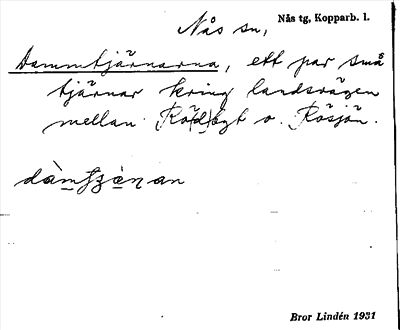 Nås sn, Nås tg, Kopparb. l.
Dammtjärnarna, ett par små
tjärnar kring landsvägen
mellan Rö(d)bygt o. Rösjön.
Bror Lindén 1931